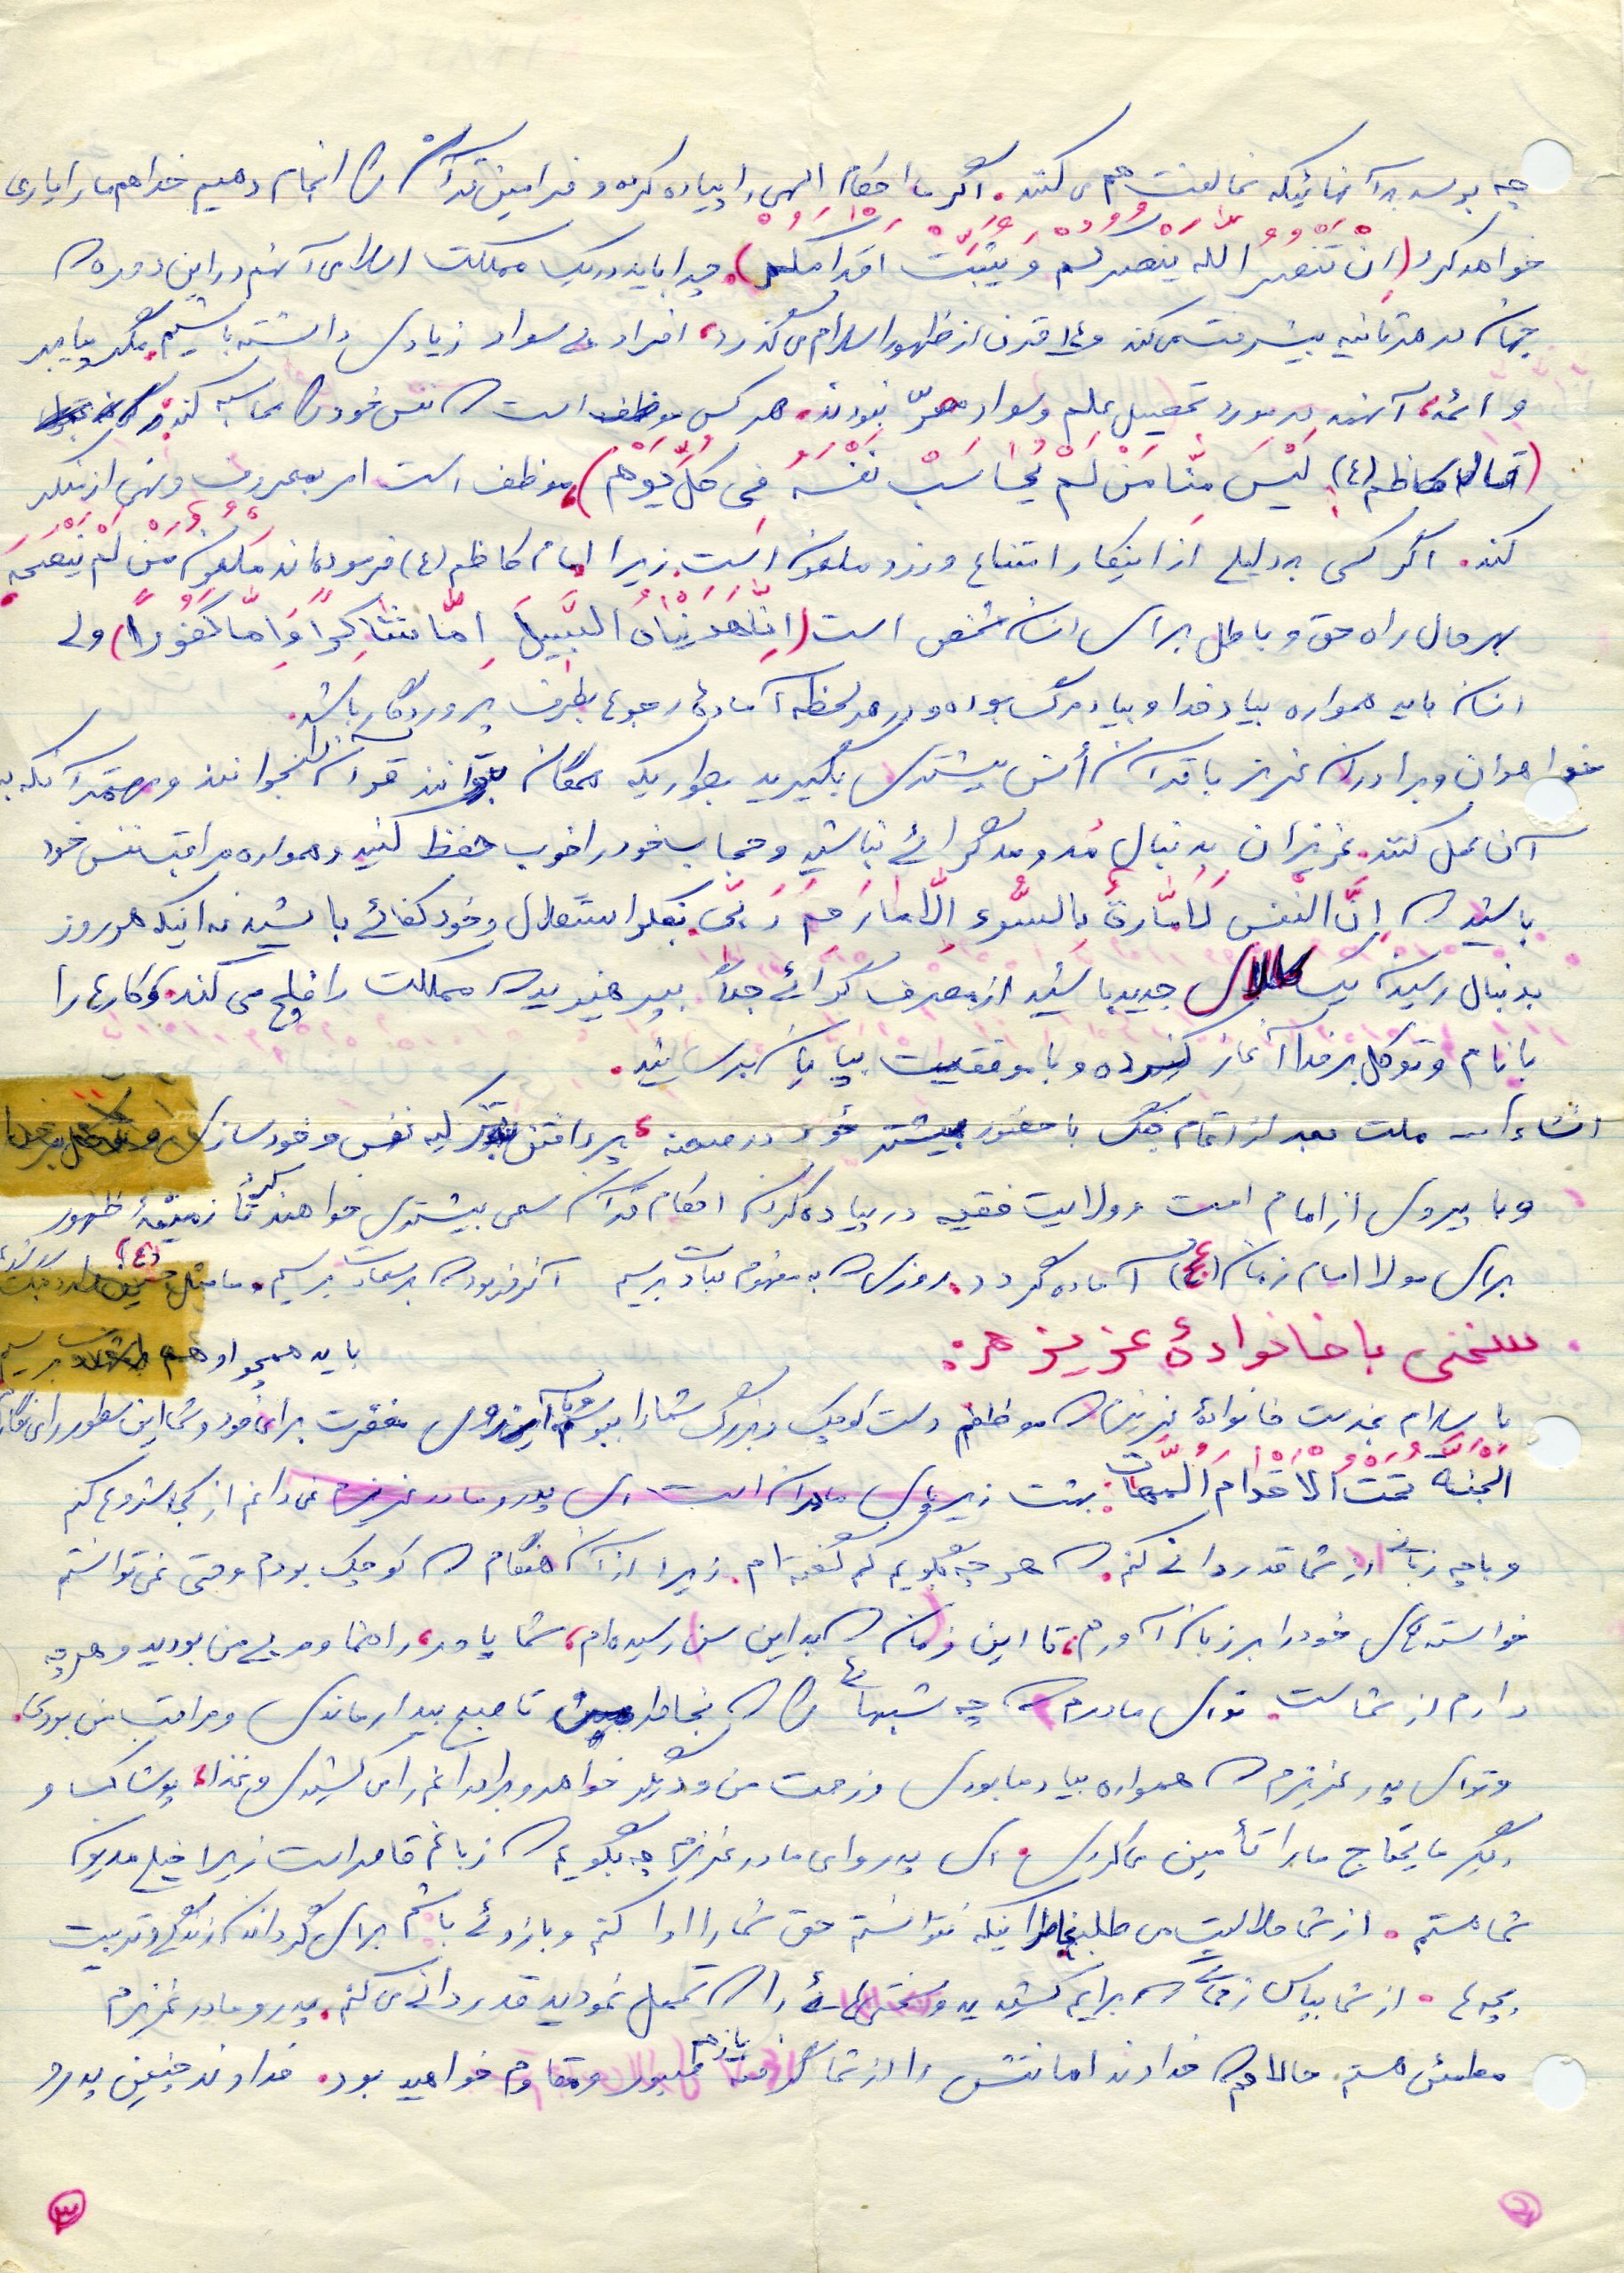 چه برسد به آنهائیکه مخالفت هم می کنند. اگر ما احکام الهی را پیاده کرده و فرامین قرآن را انجام دهیم خدا هم ما را یاری
خواهد کرد (اِنْ تَنْصُرُ اللّهَ یَنْصُرْکُمْ وَ یُثَبِّتْ اَقْدامَکُمْ). چرا باید در یک مملکت اسلامی آنهم در این دوره که
جهان در هر ثانیه پیشرفت می کند و ۱٤ قرن از ظهور اسلام می گذرد، افراد بی سواد زیادی داشته باشیم. مگر پیامبر
و ائمه، آنهمه در مورد تحصیل علم و سواد مصرّ نبودند. هر کس موظف است که نفس خود را محاسبه کند.
(قال کاظم (ع) لَیْسَ مِنّا مَنْ لَمْ یُحاسَبْ نَفْسَهُ فی کُلِّ یَوْم)، موظف است امر بمعروف و نهی از منکر
کند. اگر کسی به دلیلی از اینکار امتناع ورزد ملعون است. زیرا امام کاظم (ع) فرموده اند مَلْعُونٌ مَنْ لَمْ یَنْصَحْ
بهر حال راه حق و باطل برای انسان مشخص است (اِنّا هَدَیْناهُ السَّبیلَ اِمّا شاکِراً وَ اِمّا کَفُوراً) ولی
انسان باید همواره بیاد خدا و بیاد مرگ بوده و در هر لحظه آمادهٔ رجوع بطرف پروردگار باشد.
خواهران و برادران عزیز با قرآن أنس بیشتری بگیرید بطوریکه همگان بتوانند قرآن را بخوانند و مهمتر آنکه به
آن عمل کنند. عزیزان بدنبال مُد و مدگرائی نباشید و حجاب خود را خوب حفظ کنید و همواره مراقب نفس خود
باشید که اِنَّ النَّفْسَ لَاَمّارَةٌ بِالسُّوء اِلّا ما رَحِمَ رَبّی. بفکر استقلال و خودکفائی باشید نه اینکه هر روز
بدنبال رسیدن یک کالای جدید باشید از مصرف گرائی جداً بپرهیزید که مملکت را فلج می کند. و کارها را
با نام و توکل بر خدا آغاز کرده و با موفقیت بپایان برسانید.
انشاءالله ملت بعد از اتمام جنگ با حضور بیشتر خود در صحنه، پرداختن به تزکیه نفس و خودسازی
و با پیروی از امام امت و ولایت فقیه در پیاده کردن احکام قرآن سعی بیشتری خواهند کرد تا زمینهٔ ظهور
برای مولا امام زمان (عج) آماده گردد. روزی که به مفهوم عبادت برسیم آنروز بود که بسعادت برسیم. ما مثل حسین (ع) وارد جنگ
باید همچو او هم بشهادت برسیم
سخنی با خانوادهٔ عزیزم:
با سلام بخدمت خانوادهٔ عزیزم که موظفم دست کوچک و بزرگ شما را ببوسم و با آرزوی مغفرت برای خود و شما این سطور را می نگارم
اَلْجَنَّةُ تَحْتَ الْاَقْدامِ الْاُمَّهات: بهشت زیر پای مادران است. ای پدر و مادر عزیزم نمی دانم از کجا شروع کنم
و با چه زبانی از شما قدردانی کنم. که هر چه بگویم کم گفته ام. زیرا از آن هنگام که کوچک بودم و حتی نمی توانستم
خواسته های خود را بر زبان آورم، تا این زمان که به این سن رسیده ام، شما یاور، راهنما و مربی من بودید و هر چه
دارم از شماست. توای مادرم که چه شبهائی را که بخاطر من تا صبح بیدار ماندی و مراقب من بودی.
و توای پدر عزیزم که همواره بیاد ما بودی و زحمت من و دیگر خواهر و برادرانم را می کشیدی و غذا، پوشاک و
دیگر مایحتاج ما را تأمین می کردی. ای پدر و ای مادر عزیزم چه بگویم که زبانم قاصر است زیرا خیلی مدیون
شما هستم. از شما حلالیت می طلبم بخاطر اینکه نتوانستم حق شما را ادا کنم و بازوئی باشم برای گرداندن زندگی و تربیت
بچه ها. از شما بپاس زحماتی که برایم کشیدید و سختی هائی را که تحمل نمودید قدردانی می کنم. پدر و مادر عزیزم
مطمئن هستم حالا هم که خداوند امانتش را از شما گرفته باز هم صبور و مقاوم خواهید بود. خداوند چنین پدر و
۳